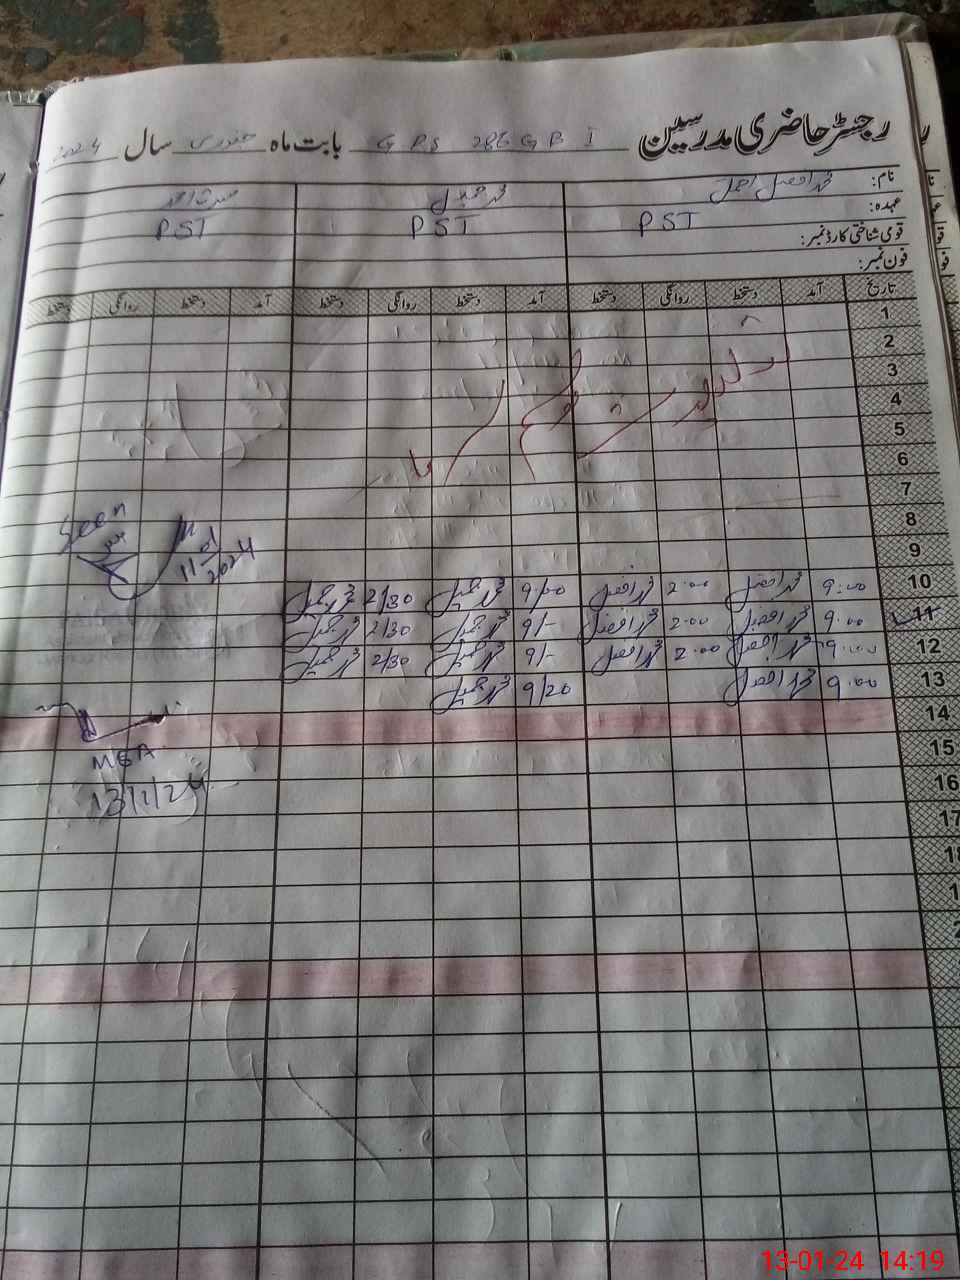 رجسٹر حاضری مدرسین G P S 286 G B I بابت ماہ جنوری سال 2024
نام: محمد افضل محمد جمیل
عہدہ: PST PST PST
قومی شناختی کارڈ نمبر:
فون نمبر:
تاریخ آمد دستخط روانگی دستخط آمد دستخط روانگی دستخط آمد دستخط روانگی دستخط
1
2
3
4
5
6
7
8
9
Seen
11/01/2024
10 9:00 محمد افضل 2:00 محمد افضل 9/00 محمد جمیل 2/30 محمد جمیل
11 9:00 محمد افضل 2:00 محمد افضل 9/- محمد جمیل 2/30 محمد جمیل
12 9:00 محمد افضل 2:00 محمد افضل 9/- محمد جمیل 2/30 محمد جمیل
13 9:00 محمد افضل 9/20 محمد جمیل
14
15
MEA
16
13/1/24
17
18
13-01-24 14:19